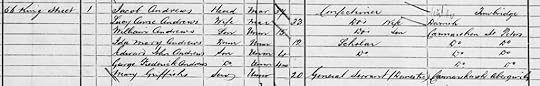 66 King Street 1 Jacob Andrews Head Mar Confectioner Tunbridge
Lucy Anne Andrews Wife Mar 33 Do Wife
William Andrews Son Unm 13 Do Son Carmarthen St. Peters
Ida Mary Andrews Unm 12 Scholar Do Do
Edward John Andrews Son Unm Do Do Do
George Frederick Andrews Do Unm Do Do
Mary Griffiths Serv Unm 20 General Servant (Domestic)